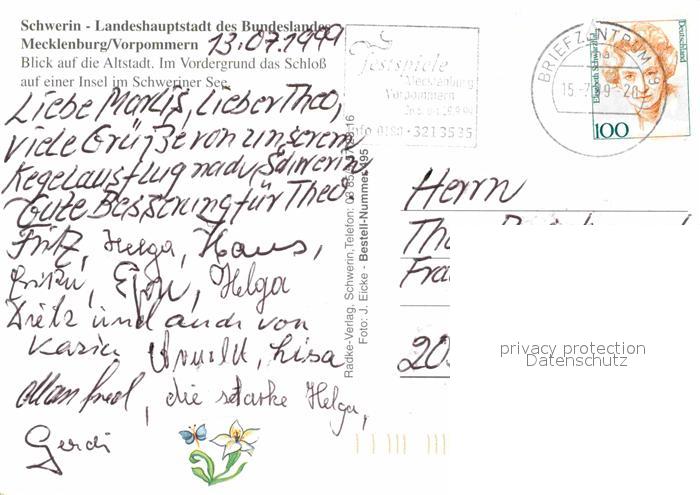 Schwerin - Landeshauptstadt des Bundeslandes
Mecklenburg/Vorpommern
13.07.1999
Blick auf die Altstadt. Im Vordergrund das Schloß
auf einer Insel im Schweriner See
Liebe Marlis, lieber Theo,
viele Grüße von unserem
Kegelausflug nach Schwerin
Gute Besserung für Theo
Fritz, Helga, Hans,
Egon, Helga
Dietz und auch von
Karin Arnold, Lisa
Manfred, die starke Helga,
Gerdi
Radke-Verlag, Schwerin, Telefon:
Foto: J. Eicke - Bestell-Nummer
Festspiele
Mecklenburg
Vorpommern
Info 0180 - 321 35 35
BRIEFZENTRUM 19
Elisabeth Schwarzhaupt
Deutschland
100
Herrn
20
privacy protection
Datenschutz